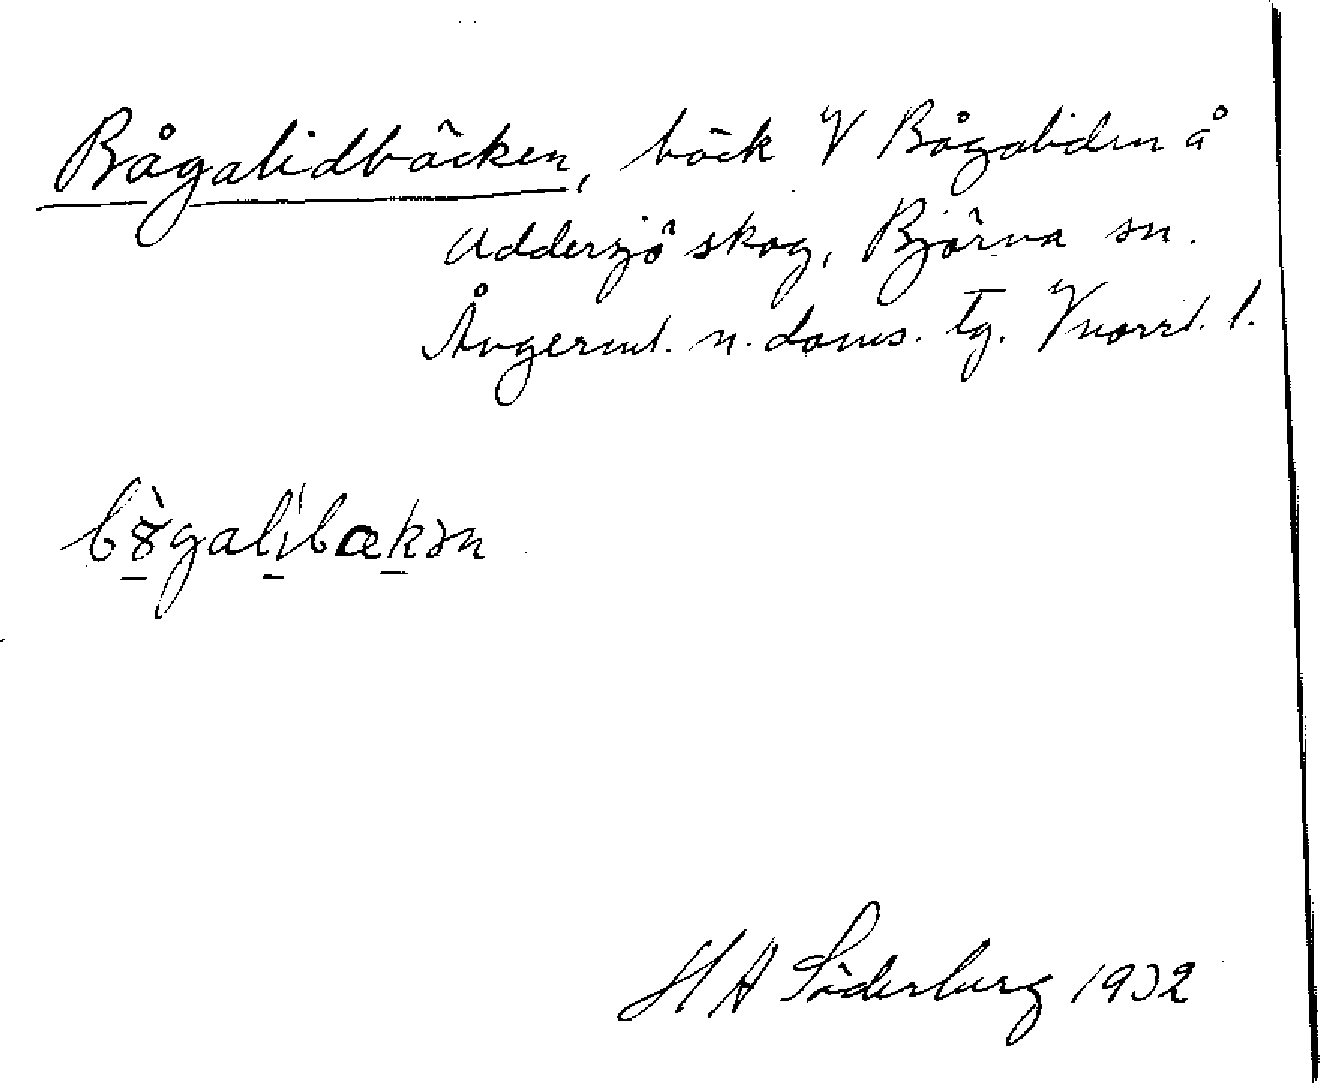 Bågalidbäcken, bäck V Bågaliden å
Addersjö skog, Björna sn.
Ångerml. n. doms. tg. Vnorrl. l.
bå̀galibækən
H A Söderberg 1932